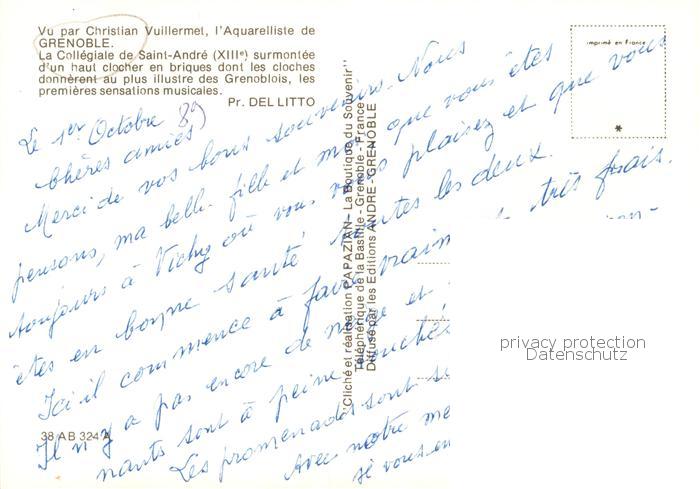 Vu par Christian Vuillermet, l'Aquarelliste de
GRENOBLE.
La Collégiale de Saint-André (XIIIe) surmontée
d'un haut clocher en briques dont les cloches
donnèrent au plus illustre des Grenoblois, les
premières sensations musicales.
Pr. DEL LITTO
imprimé en France
*
Le 1er Octobre 89
Chères amies,
Merci de vos bons souvenirs. Nous
pensons, ma belle-fille et moi que vous êtes
toujours à Vichy où vous vous plaisez et que vous
êtes en bonne santé, toutes les deux.
Ici il commence à faire vraiment très frais.
Il n'y a pas encore de neige et
sont à peine
Les promenades sont
Avec notre me
si vous en
"Cliché et réalisation PAPAZIAN - La Boutique du Souvenir"
Téléphérique de la Bastille - Grenoble - France
Diffusé par les Editions ANDRE - GRENOBLE
38 AB 324 A
privacy protection
Datenschutz